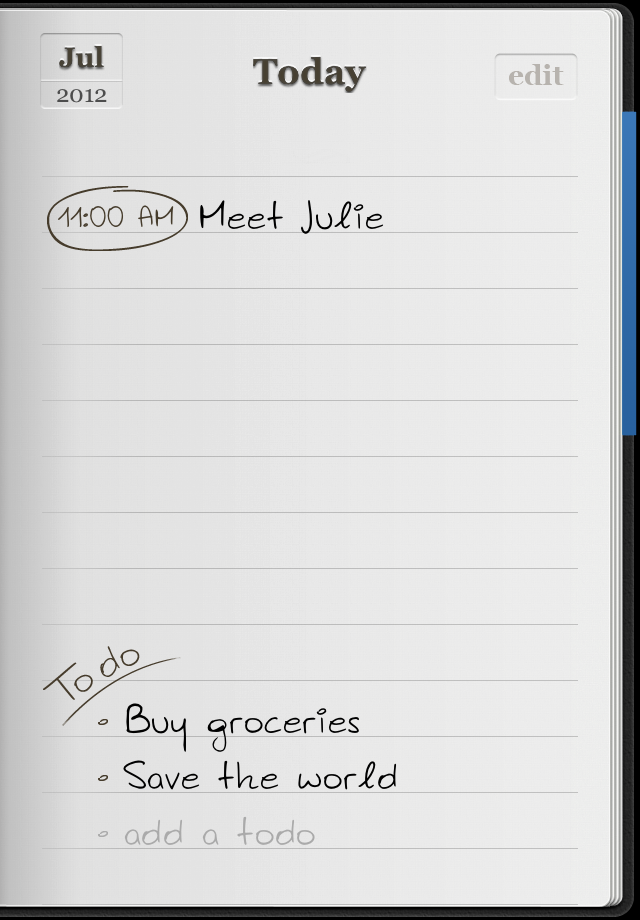 Jul
2012
Today
edit
11:00 AM Meet Julie
To do
Buy groceries
Save the world
add a todo